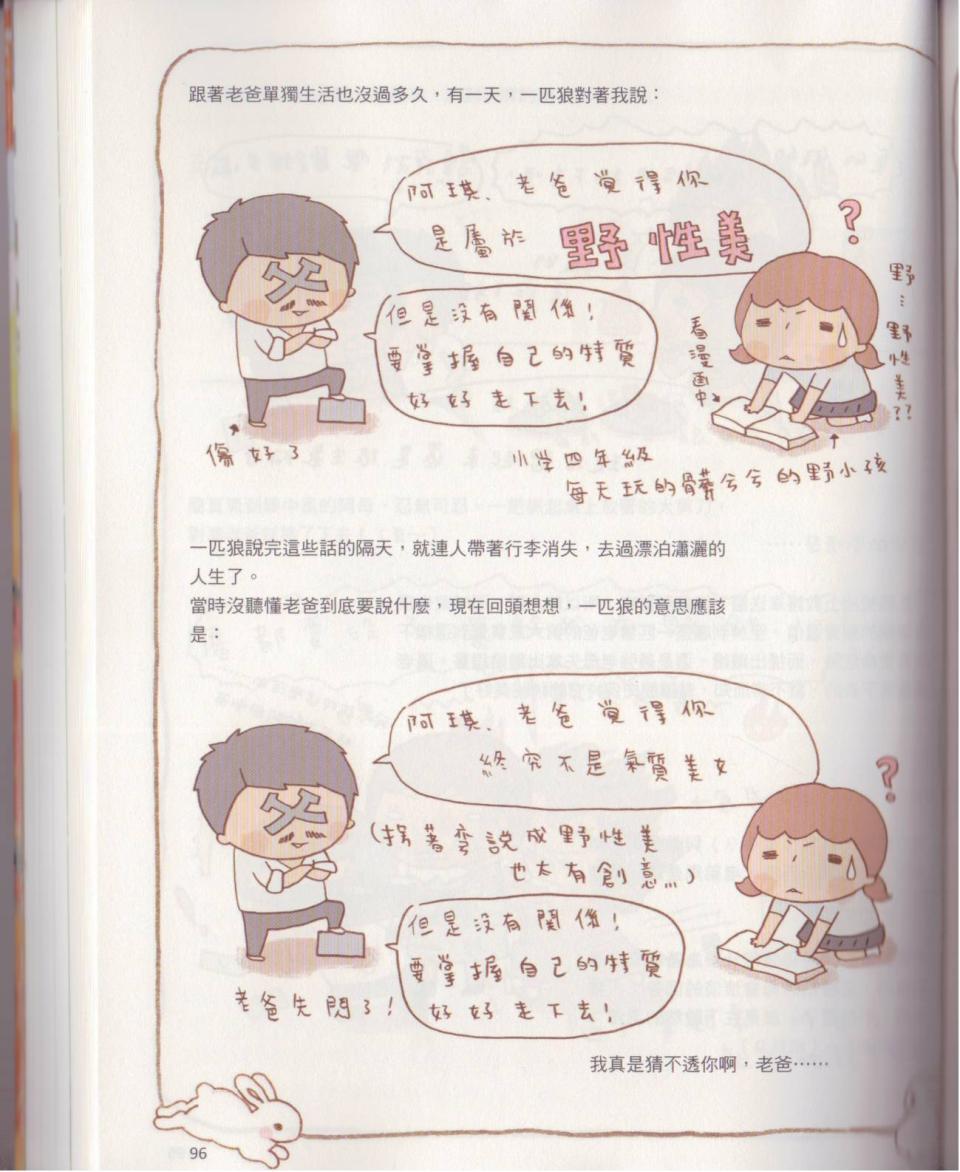 跟著老爸單獨生活也沒過多久，有一天，一匹狼對著我說：
阿琪、老爸覺得你
是屬於 野性美
?
野…野性美??
父
但是沒有關係!
要掌握自己的特質
好好走下去!
看漫画中
傷好了
小学四年級
每天玩的髒兮兮的野小孩
一匹狼說完這些話的隔天，就連人帶著行李消失，去過漂泊瀟灑的
人生了。
當時沒聽懂老爸到底要說什麼，現在回頭想想，一匹狼的意思應該
是：
阿琪、老爸覺得你
終究不是氣質美女
?
父
(拐著弯說成野性美
也太有創意...)
但是沒有關係!
要掌握自己的特質
好好走下去!
老爸先閃了!
我真是猜不透你啊，老爸……
96